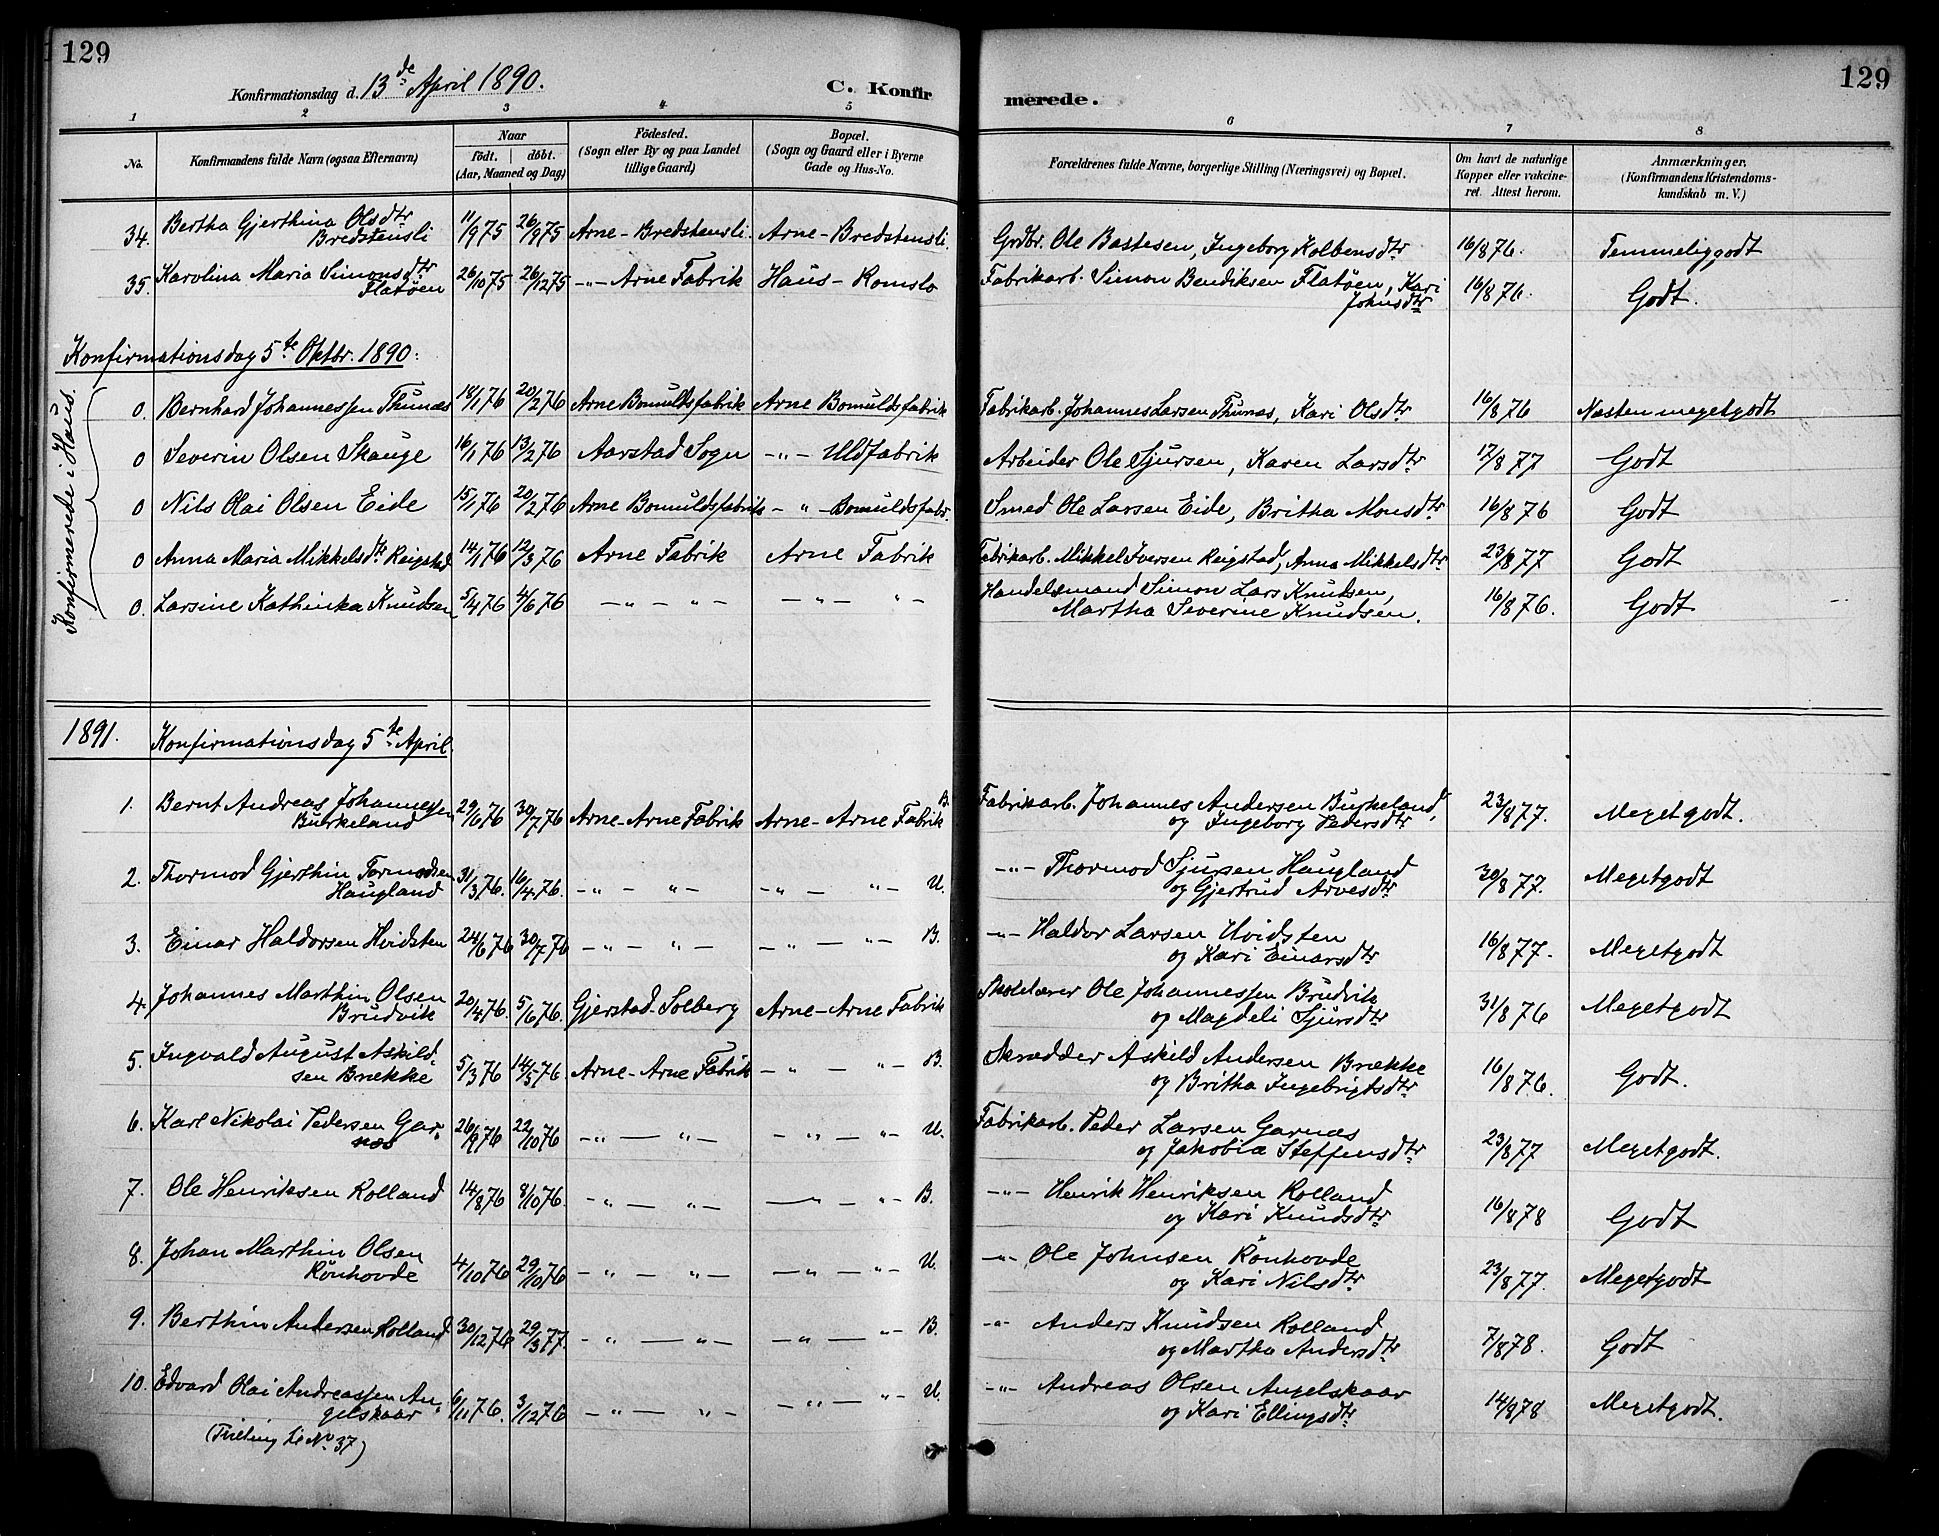 129
Konfirmationsdag d. 13de April 1890.
C. Konfir
merede.
129
1 2 3 4 5 6 7 8
No. Konfirmandens fulde Navn (ogsaa Efternavn) Naar födt. döbt. (Aar, Maaned og Dag) Födested. (Sogn eller By og paa Landet tillige Gaard) Bopæl. (Sogn og Gaard eller i Byerne Gade og Hus-No. Forældrenes fulde Navne, borgerlige Stilling (Næringsvei) og Bopæl. Om havt de naturlige Kopper eller vakcineret. Attest herom. Anmærkninger, (Konfirmandens Kristendomskundskab m. V.)
34. Bertha Gjerthina Olsdtr Bredstensli 11/9 75 26/9 75 Arne - Bredstensli Arne - Bredstensli. Grdbr. Ole Bastesen, Ingeborg Kolbensdtr 16/8 76. Temmelig godt
35. Karolina Maria Simonsdtr Flatøen 26/10 75 26/12 75 -"- Arne Fabrik Haus - Romslo Fabrikarb. Simon Bendiksen Flatøen, Kari Johnsdtr 16/8 76. Godt.
Konfirmationsdag 5te Oktbr. 1890:
Konfirmerede i Haus.
0. Bernhard Johannessen Thunæs 18/1 76 20/2 76 Arne Bomuldsfabrik Arne Bomuldsfabrik Fabrikarb. Johannes Larsen Thunæs, Kari Olsdtr 16/8 76 Næsten meget godt
0 Severin Olsen Skauge 16/1 76 13/2 76 Aarstad Sogn -"- Uldfabrik Arbeider Ole Sjursen, Karen Larsdtr 17/8 77 Godt
0 Nils Olai Olsen Eide 15/1 76 20/2 76 Arne Bomuldsfabrik - " - Bomuldsfabr. Smed Ole Larsen Eide, Britha Monsdtr 16/8 76 Godt
0 Anna Maria Mikkelsdtr Reigstad 14/1 76 12/3 76 Arne Fabrik Arne Fabrik Fabrikarb. Mikkel Iversen Reigstad, Anna Mikkelsdtr 23/8 77 Godt
0. Larsine Kathinka Knudsen 5/4 76 4/6 76 -"- -"- -"- "- Handelsmand Simon Lars Knudsen, Martha Severine Knudsen. 16/8 76. Godt
1891. Konfirmationsdag 5te April.
1. Bernt Andreas Johannessen Burkeland 29/6 76 30/7 76 Arne - Arne Fabrik Arne - Arne Fabrik B. Fabrikarb. Johannes Andersen Burkeland, og Ingeborg Pedersdtr 23/8 77. Meget godt.
2. Thormod Gjerthin Tormodsen Haugland 31/3 76. 16/4 76. -"- "- -"- "- U. -"- Thormod Sjursen Haugland og Gjertrud Arvesdtr 30/8 77. Meget godt
3. Einar Haldorsen Hvidsten 24/6 76 30/7 76 -"- "- -"- "- B. -"- Haldor Larsen Hvidsten og Kari Einarsdtr 16/8 77. Meget godt
4. Johannes Marthin Olsen Brudvik 20/4 76. 5/6 76. Gjerstad - Solberg Arne - Arne Fabrik Skolelærer Ole Johannessen Brudvik og Magdeli Sjursdtr 31/8 76 Meget godt
5. Ingvald August Askildsen Brække 5/3 76 14/5 76. Arne - Arne Fabrik -"- "- B. Skrædder Askild Andersen Brække og Britha Ingebrigtsdtr 16/8 76. Godt.
6. Karl Nikolai Pedersen Garnæs 26/9 76 22/10 76 -"- "- -"- "- U. Fabrikarb. Peder Larsen Garnæs og Jakobia Steffensdtr 23/8 77 Meget godt.
7. Ole Henriksen Rolland 14/8 76 8/10 76. -"- "- -"- "- B. -"- Henrik Henriksen Rolland og Kari Knudsdtr 16/8 78 Godt
8. Johan Marthin Olsen Rönhovde 4/10 76 29/10 76 -"- "- -"- "- U. -"- Ole Johnsen Rönhovde og Kari Nilsdtr 23/8 77. Meget godt
9. Berthin Andersen Rolland 30/12 76 29/3 77. -"- "- -"- "- B. -"- Anders Knudsen Rolland og Martha Andersdtr 7/8 78. Godt
10. Edvard Olai Andreassen Angelskaar 6/11 76. 3/12 76 -"- "- -"- "- U. -"- Andreas Olsen Angelskaar og Kari Ellingsdtr 14/9 78 Meget godt.
(Tvilling No 37)